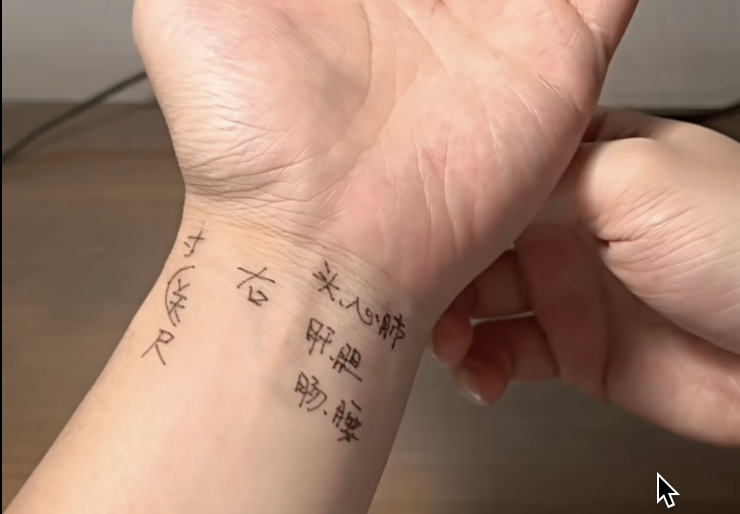 寸
(关
尺
右
头、心肺
肝胆
肠、腰